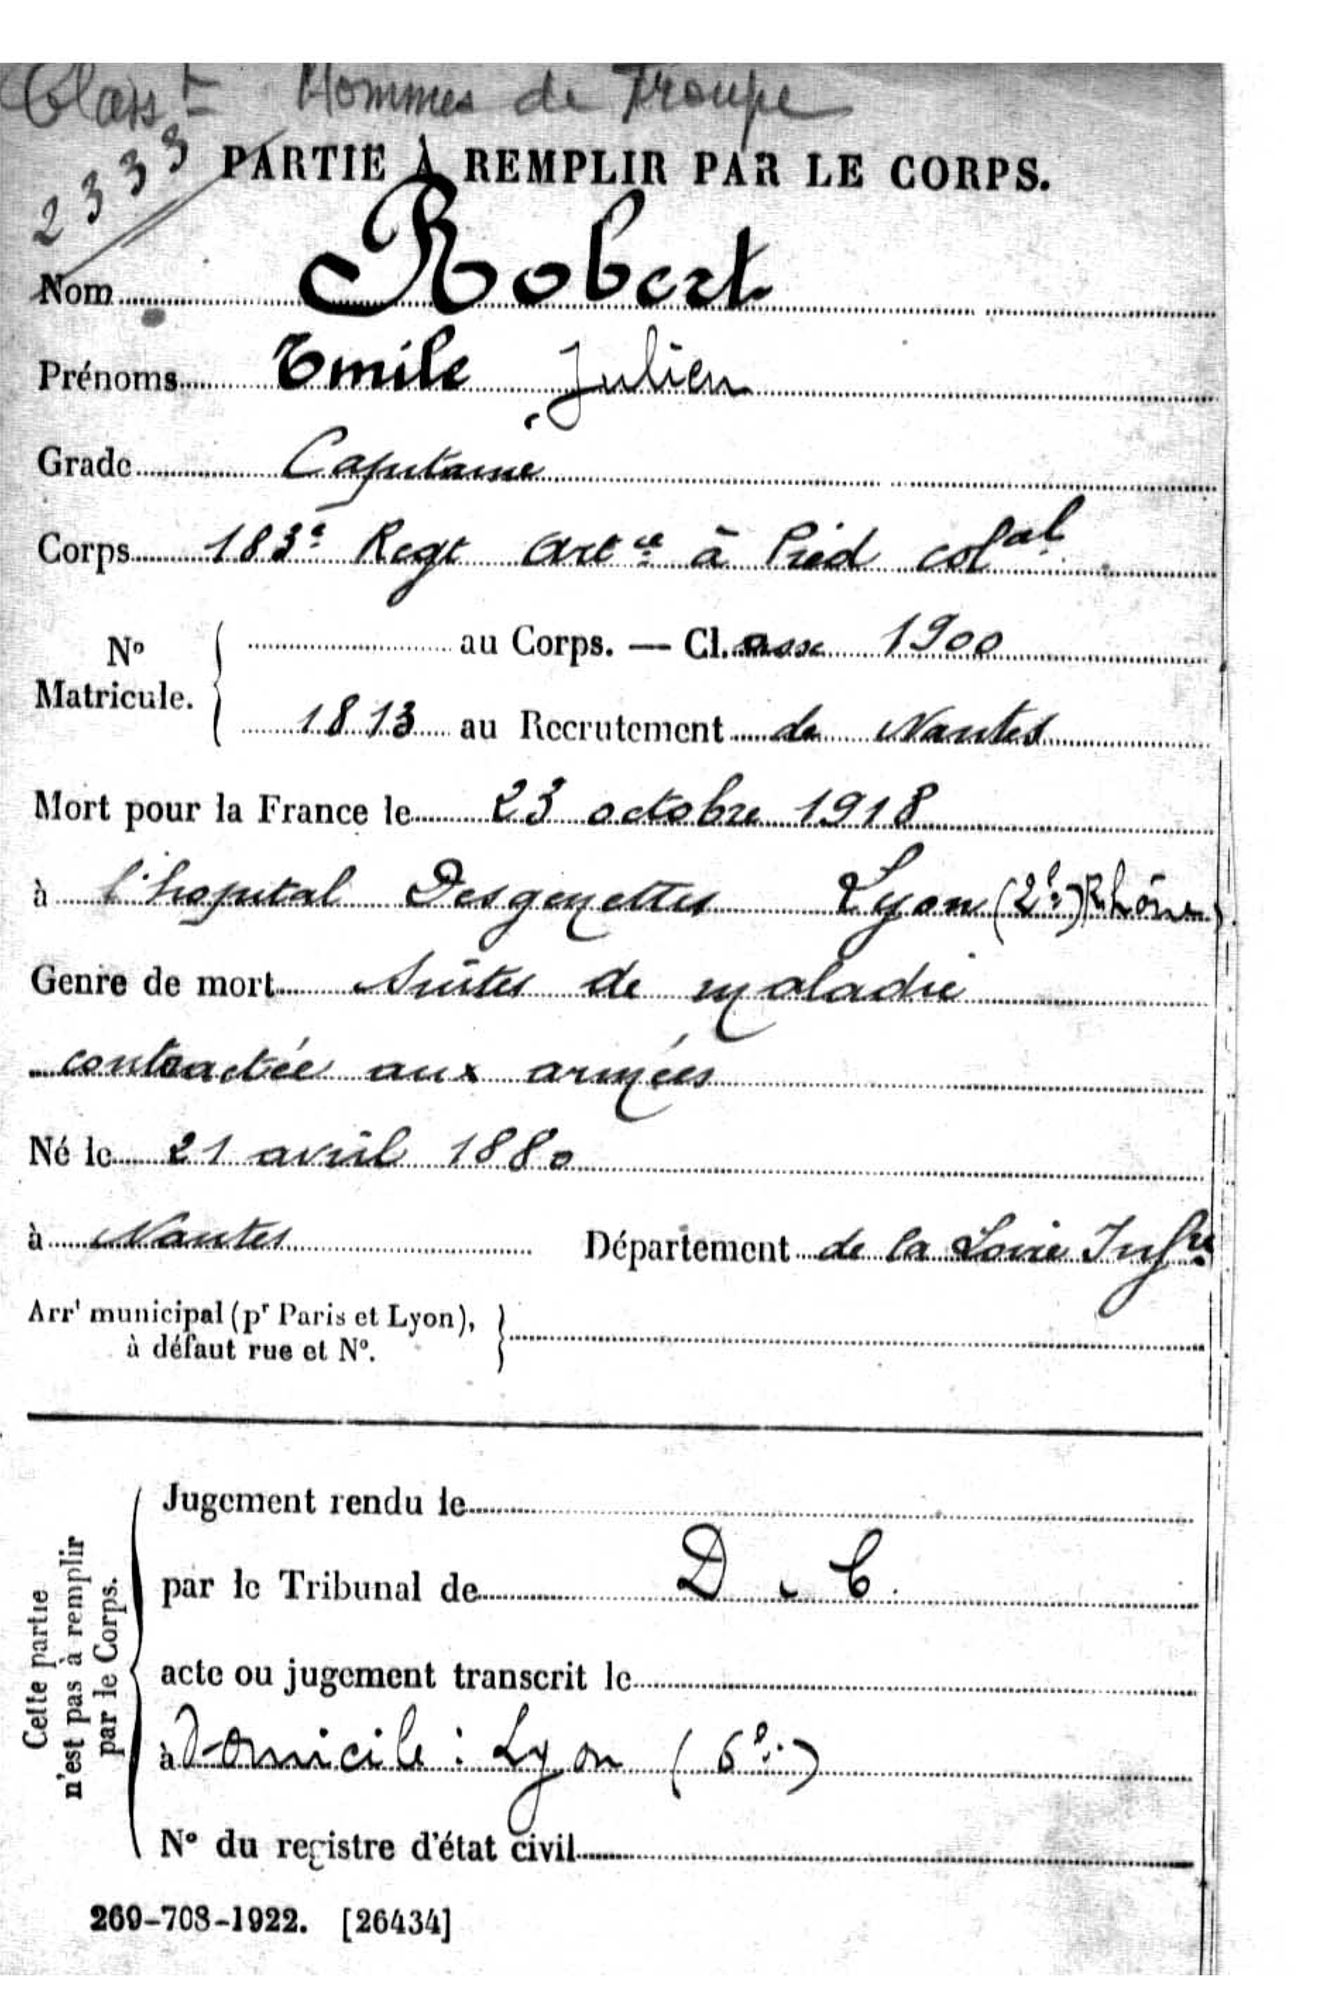 Class.t Hommes de Troupe
2333
PARTIE À REMPLIR PAR LE CORPS.
Nom Robert
Prénoms Emile Julien
Grade Capitaine
Corps 183e Regt Artie à Pied colal
No Matricule. { au Corps. — Cl.asse 1900
1813 au Recrutement de Nantes
Mort pour la France le 23 octobre 1918
à l'hopital Desgenettes Lyon (2e) Rhône)
Genre de mort Suites de maladie
contractée aux armées
Né le 21 avril 1880
à Nantes Département de la Loire Infre
Arrt municipal (pr Paris et Lyon),
à défaut rue et No. }
Cette partie
n'est pas à remplir
par le Corps.
Jugement rendu le
par le Tribunal de D. C.
acte ou jugement transcrit le
à Domicile : Lyon (6e)
No du registre d'état civil
269-708-1922. [26434]